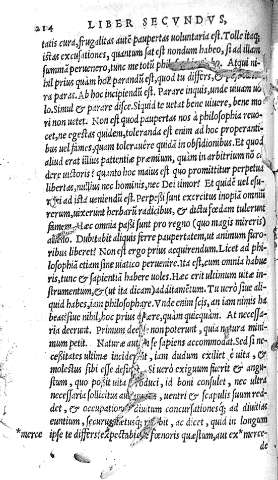 214 LIBER SECVNDVS,
tatis cura, frugalitas autē paupertas voluntaria est. Tolle itaq;
istas excusationes, quantum sat est nondum habeo, si ad illam
summā peruenero, tunc me totū philosophiæ Atqui ni
hil prius quàm hoc parandū est, quod tu differs, & p
ra paras. Ab hoc incipiendū est. Parare inquis, unde uiuam uo
lo. Simul & parare disce. Siquid te uetat bene uiuere, bene mo
ri non uetat. Non est quod paupertas nos à philosophia reuo-
cet, ne egestas quidem, toleranda est enim ad hoc properanti-
bus uel fames, quam tolerauere quidā in obsidionibus. Et quod
aliud erat illius patientiæ præmium, quàm in arbitriū nō ca
dere uictoris? quanto hoc maius est quo promittitur perpetua
libertas, nullius nec hominis, nec Dei timor? Et quidē uel esu-
ad ista ueniendū est. Perpessi sunt exercitus inopiā omniū
rerum, uixerunt herbarū radicibus, & dictu fœdam tulerunt
famem. Hæc omnia passi sunt pro regno (quo magis mireris)
alieno. Dubitabit aliquis ferre paupertatem, ut animum furo-
ribus liberet? Non est ergo prius acquirendum. Licet ad philo-
sophiā etiam sine uiatico peruenire. Ita est, cum omnia habue
ris, tunc & sapientiā habere uoles. Hæc erit ultimum uitæ in-
strumentum, & (ut ita dicam) additamentū. Tu uerò siue ali-
quid habes, iam philosophare. Vnde enim scis, an iam nimis ha
beas? siue nihil, hoc prius quære, quàm quicquam. At necessa-
ria deerunt. Primum deesse non poterunt, quia natura mini-
mum petit. Naturæ autem se sapiens accommodat. Sed si ne-
cessitates ultimæ inciderint, iam dudum exiliet è uita, &
molestus sibi esse desinet. Si uerò exiguum fuerit & angu-
stum, quo possit uita produci, id boni consulet, nec ultra
necessaria sollicitus aut anxius, uentri & scapulis suum red-
det, & occupationes diuitum concursationesq; ad diuitias
euntium, securus lætusq; ridebit, ac dicet, quid in longum
*merce ipse te differs? expectabis fœnoris quæstum, aut ex *merce-
de